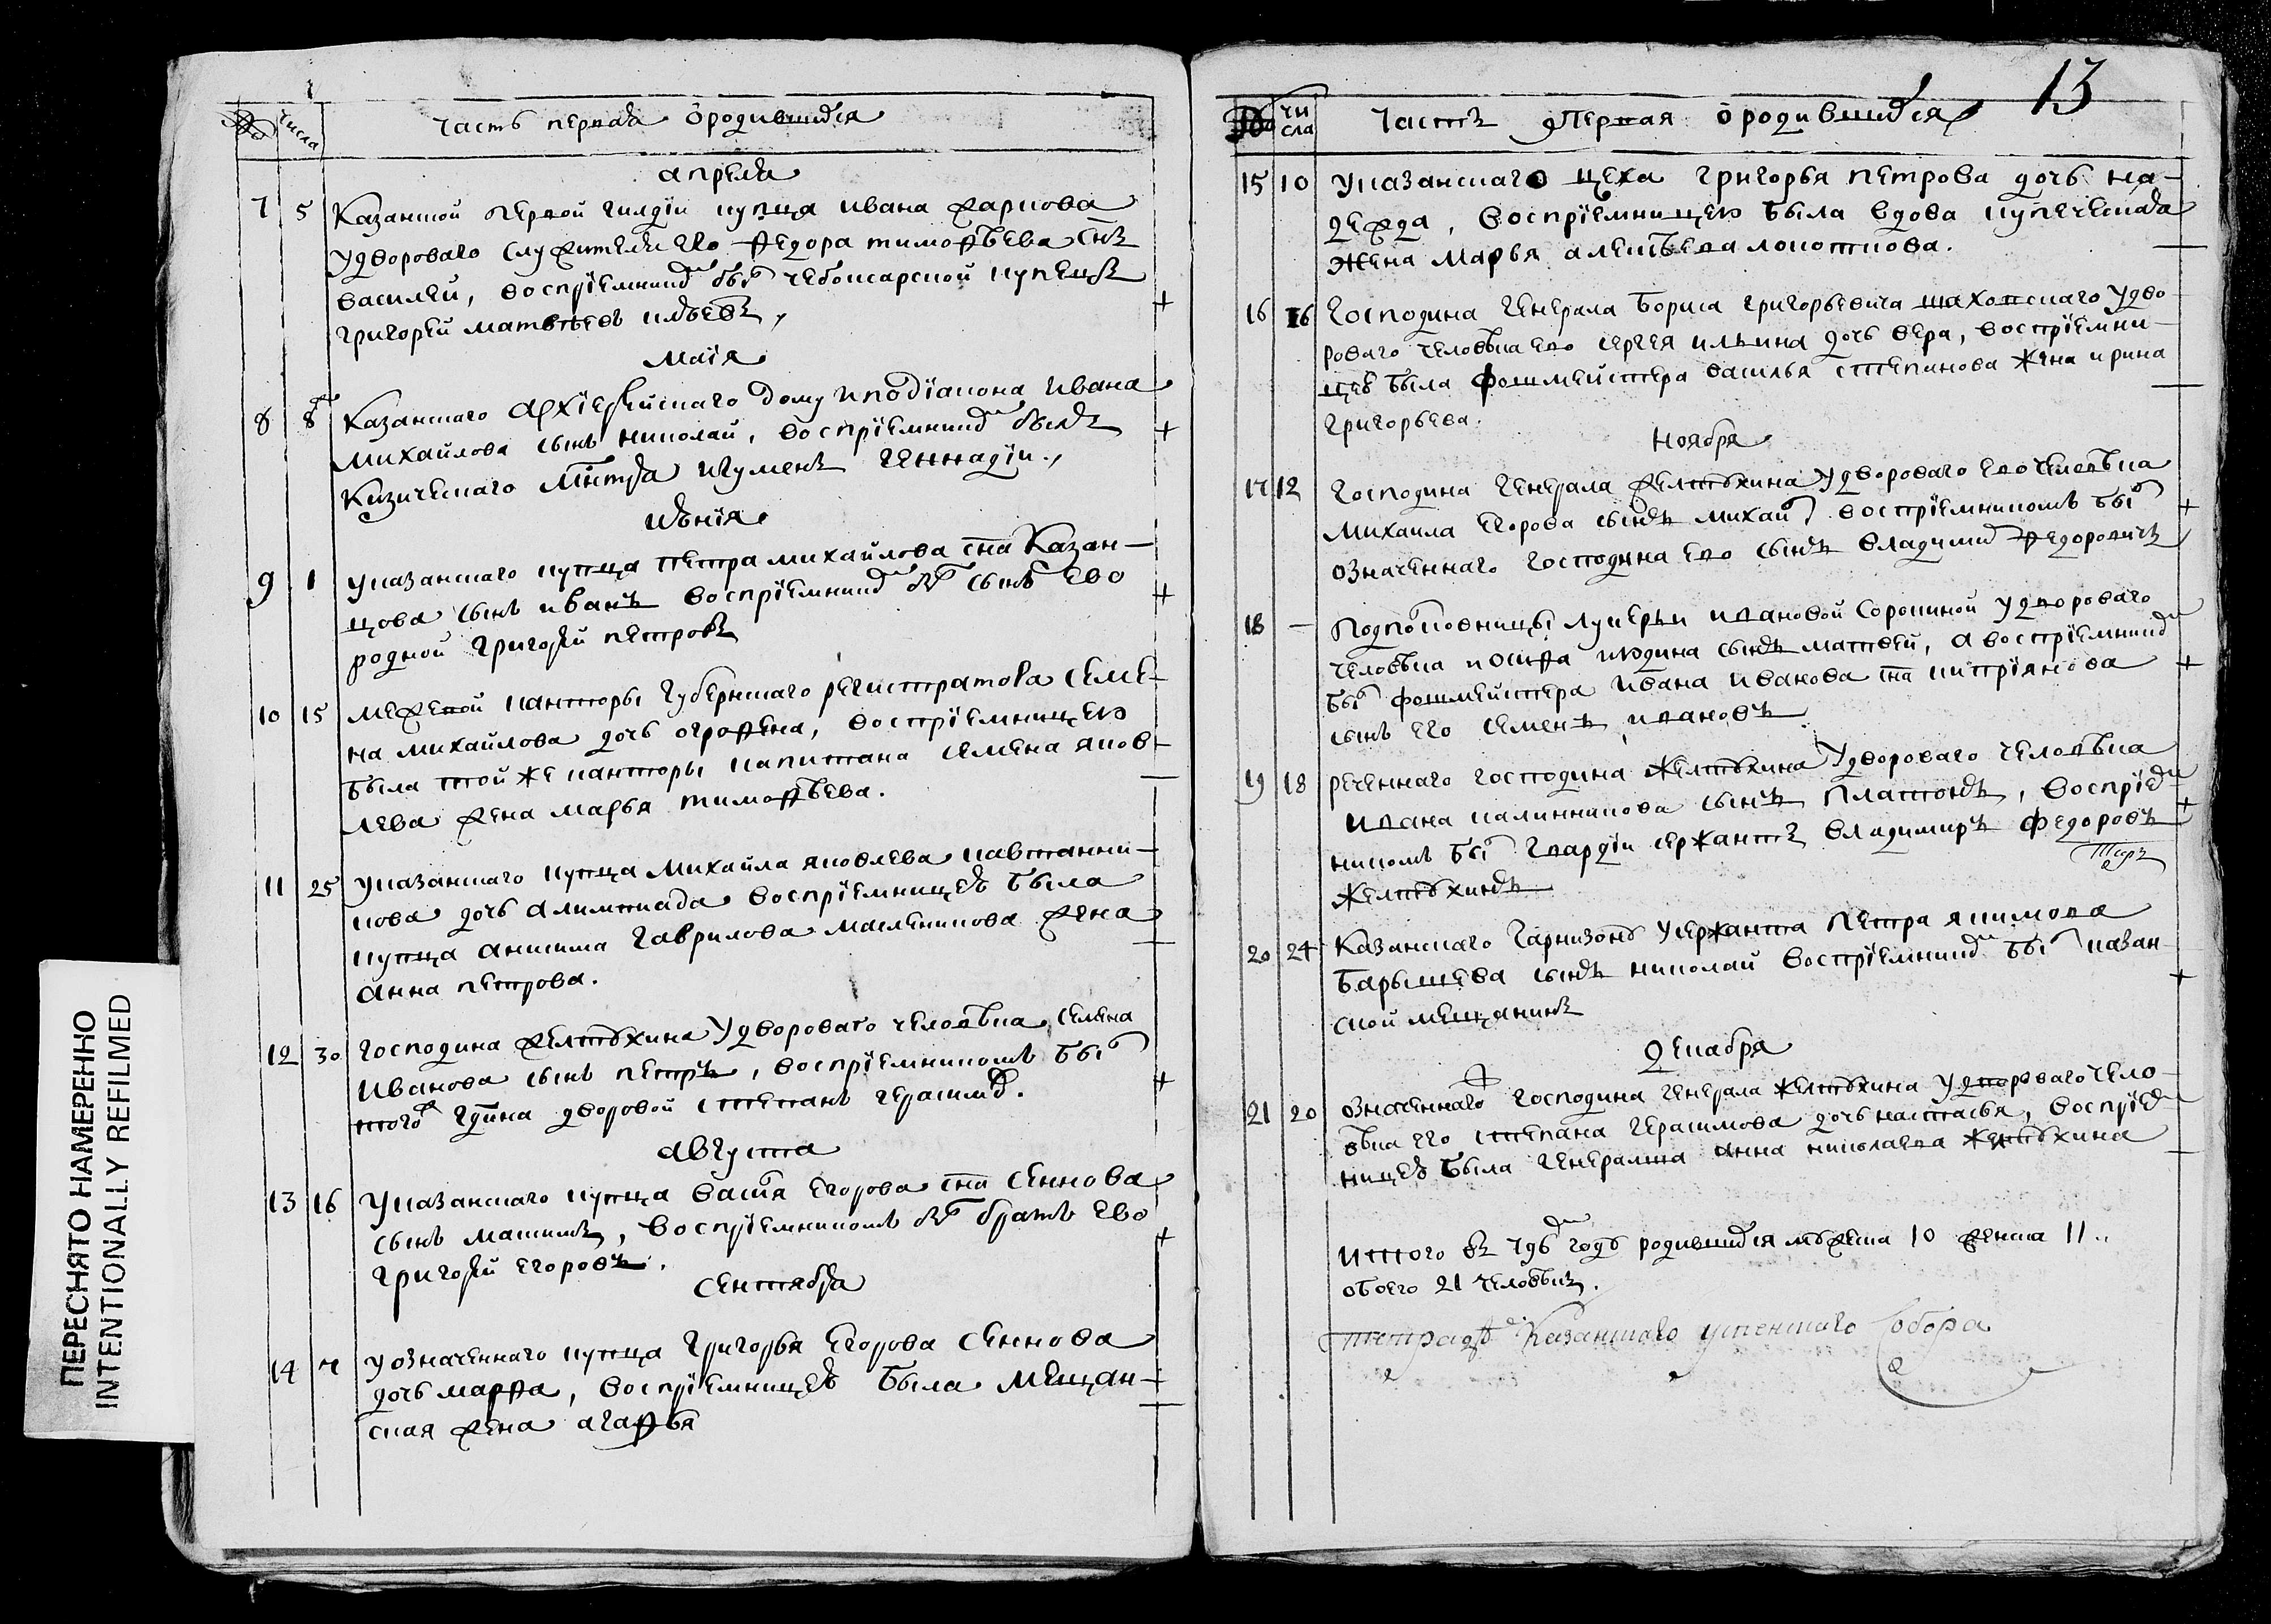 № числа Часть первая о родившихся
апреля
7 5 Казанской первой гилдїи купца ивана жаркова
у двороваго служителя его федора тимофѣева снъ
василей, воспрїемником былъ чебоксарской купецъ
григорей матвѣевъ
маїя
8 8 Казанскаго архїерейскаго дому иподїакона ивана
михайлова сынъ николай, воспрїемником былъ
Кизическаго мнтря игуменъ геннадїи.
июнїя
9 1 у казанскаго купца петра михайлова сна Казан-
цова сынъ иванъ воспрїемником былъ сынъ ево
родной григорей петровъ
10 15 межевой канторы губернскаго регистратора семе-
на михайлова дочь огрофена, воспрїемницею
была той же канторы капитана семена яков-
лева жена марья тимофѣева.
11 25 у казанскаго купца михайла яковлева кавтанни-
кова дочь алимпиада воспрїемницею была
купца анисима гаврилова масленикова жена
анна петрова.
12 30 господина желтухина у двороваго человѣка семена
иванова сынъ петръ, воспрїемникомъ былъ
того ж гдина дворовой степанъ герасимов.
августа
13 16 у казанскаго купца василя егорова сна сеннова
сынъ максимъ, воспрїемникомъ былъ братъ ево
григорей егоровъ.
сентября
14 7 у означеннаго купца григорья егорова сеннова
дочь марфа, воспрїемницею была мещан-
ская жена агафья
13
№ числа Часть Первая о родившихся
15 10 у казанскаго цеха григорья петрова дочь на-
дежда, воспрїемницею была вдова купеческая
жена марья алексѣева локоткова.
16 16 господина генерала бориса григорьевича шаховскаго у дво-
роваго человѣка ево сергея ильина дочь вера, воспрїемни-
цею была фошмейстера василья степанова жена ирина
григорьева.
ноября
17 12 господина генерала желтухина у двороваго ево человѣка
михаила егорова сынъ михаил воспрїемникомъ былъ
означеннаго господина ево сынъ владимир федоровичъ
18 — подполковницы лукерьи ивановой сорокиной у двороваго
человѣка иосифа июдина сынъ матвей, а воспрїемником
былъ фошмейстера ивана иванова сна киприянова
сынъ его семенъ ивановъ
19 18 реченнаго господина желтухина у двороваго человѣка
ивана калинникова сынъ платонъ, воспрїем-
никомъ былъ гвардїи сержантъ владимиръ федоровъ
желтухинъ
20 24 Казанскаго гарнизону у сержанта петра якимова
барышева сынъ николай воспрїемником былъ казан-
ской мещанинъ
декабря
21 20 означеннаго господина генерала желтухина у двороваго чело-
вѣка его степана герасимова дочь настасья, воспрїем-
ницею была генеральша анна николаевна желтухина
итого въ 796 году родившихся мужеска 10 женска 11..
обоего 21 человѣкъ.
тетрадь Казанскаго успенскаго Собора
ПЕРЕСНЯТО НАМЕРЕННО
INTENTIONALLY REFILMED